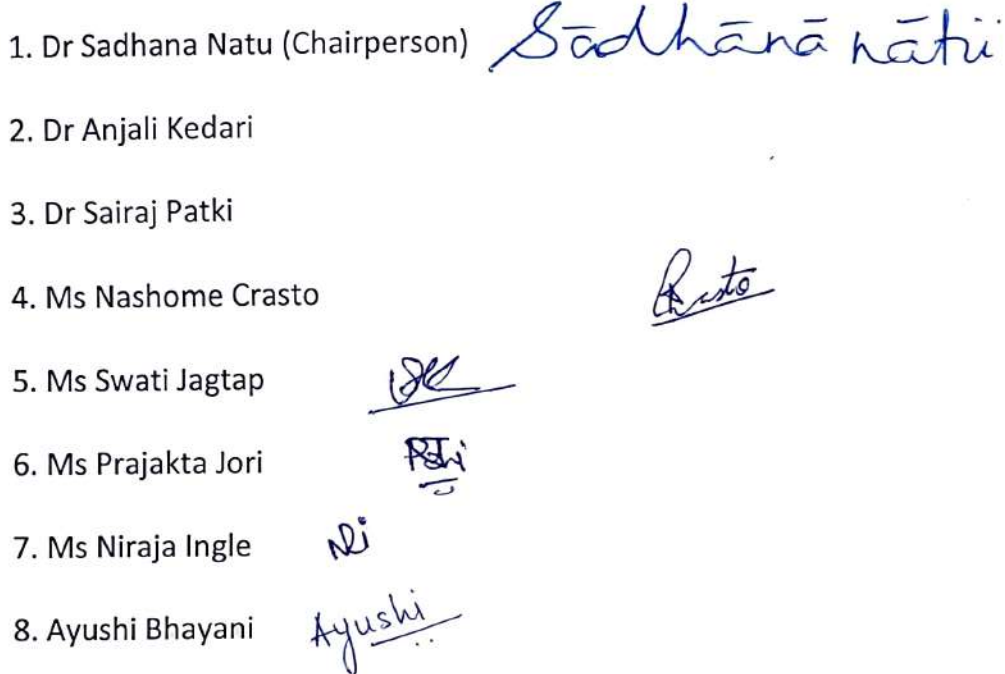 1. Dr Sadhana Natu (Chairperson) Sādhānā nātu
2. Dr Anjali Kedari
3. Dr Sairaj Patki
4. Ms Nashome Crasto Crasto
5. Ms Swati Jagtap
6. Ms Prajakta Jori
7. Ms Niraja Ingle
8. Ayushi Bhayani Ayushi